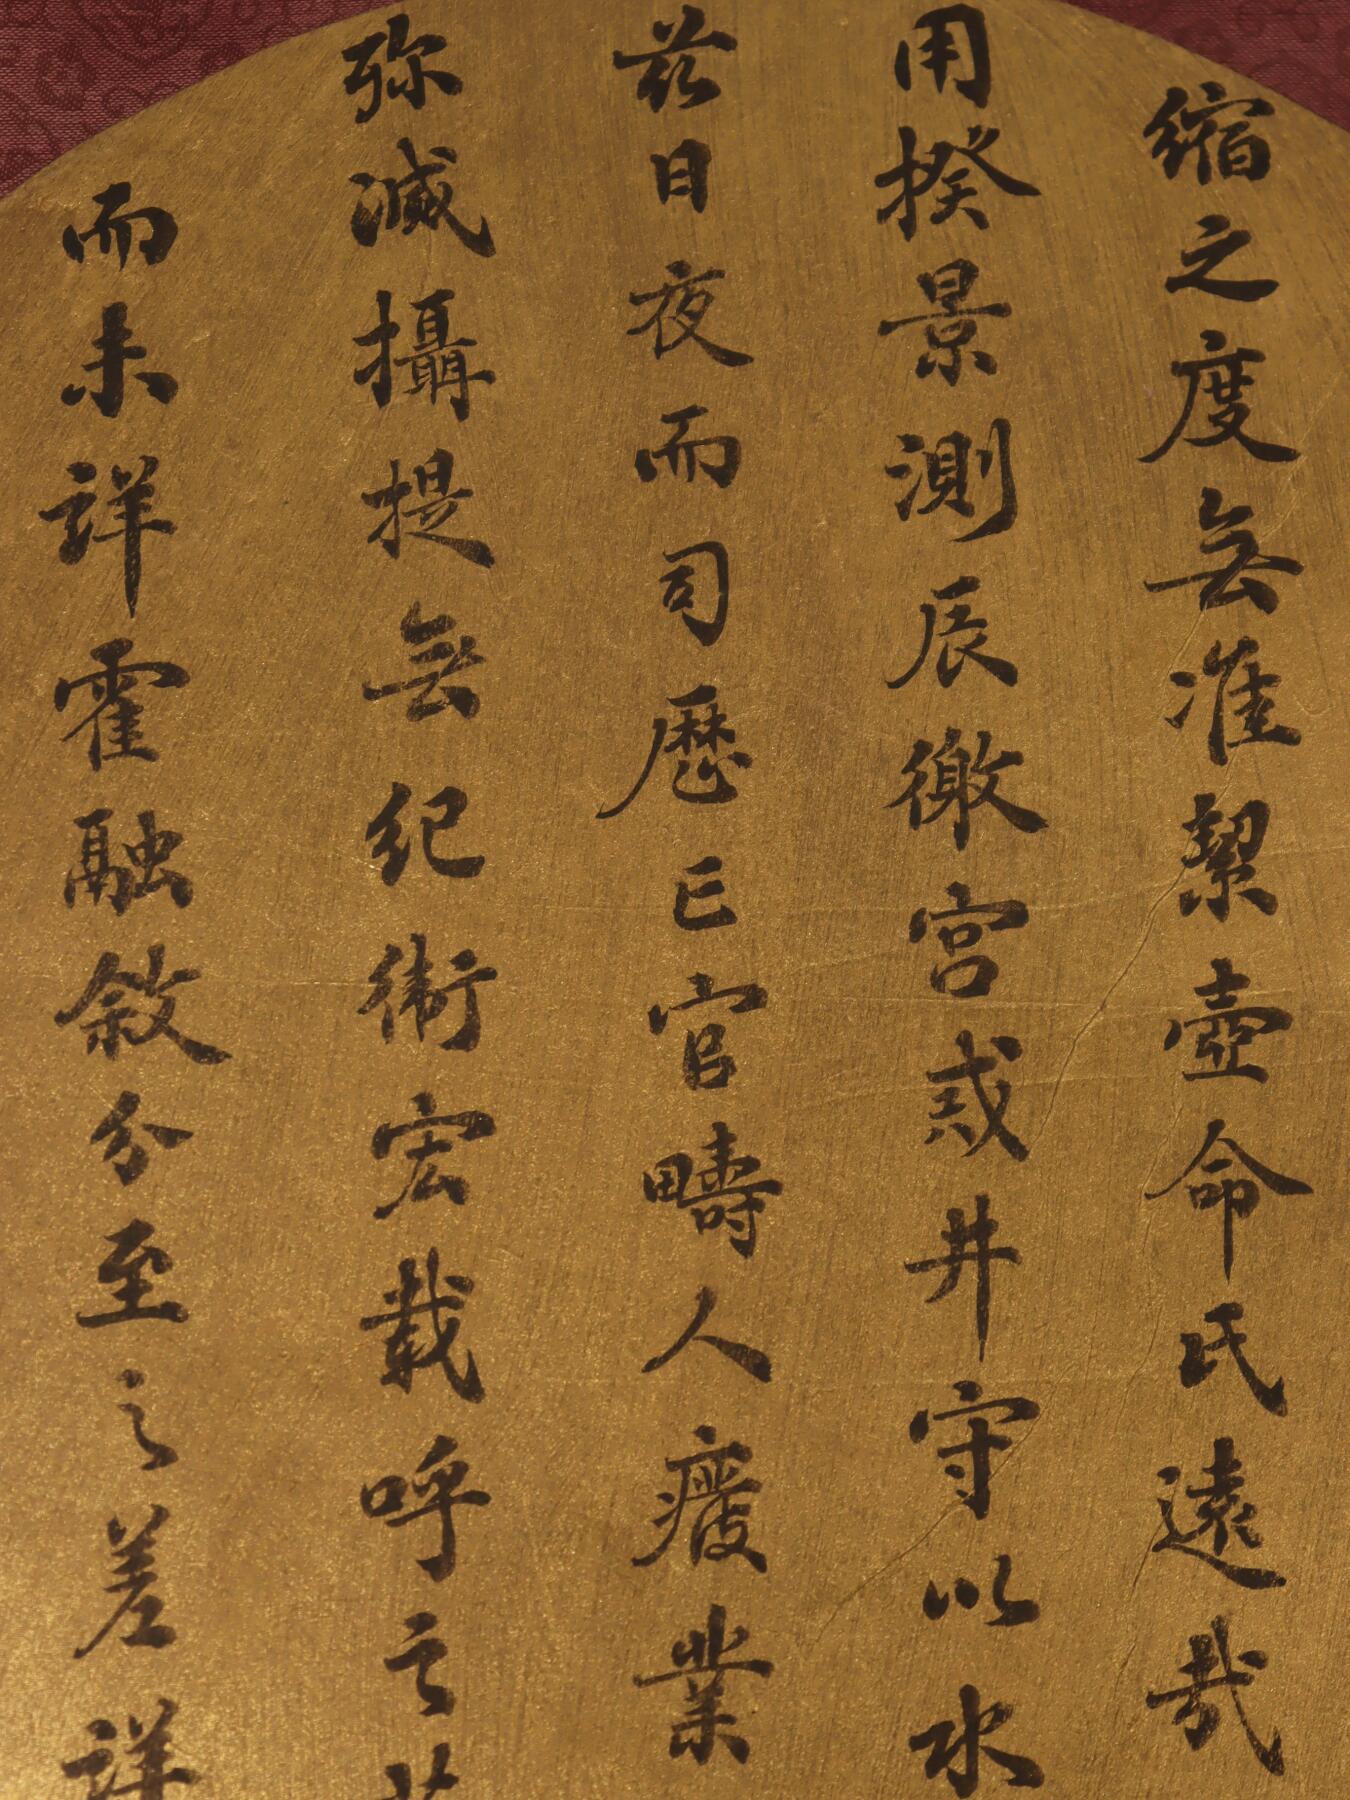 縮之度無准絜壺命氏遠哉
用揆景測辰徼宮戒井守以水
茲日夜而司歷亡官疇人癈業
弥滅攝提無紀衛宏載呼之
而未詳霍融敘分至之差詳